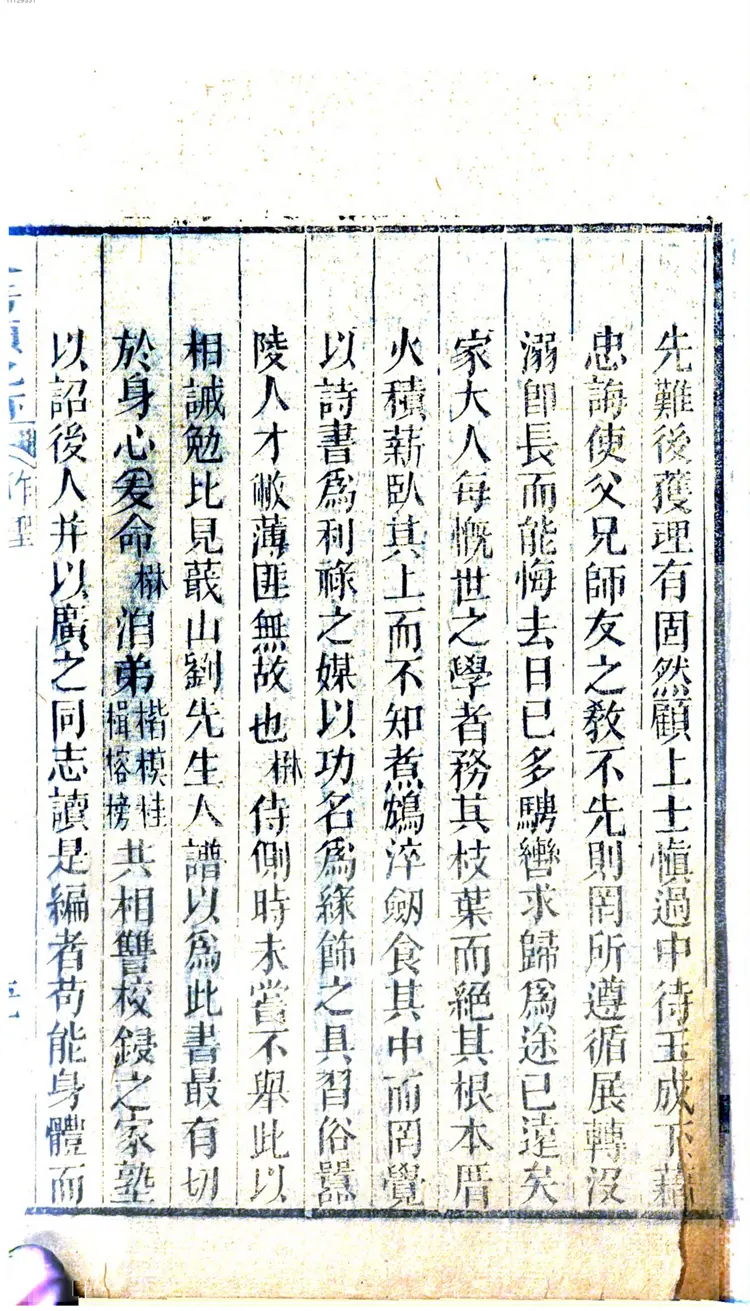 先難後獲理有固然顧上士愼過中待玉成下藉
忠誨使父兄師友之敎不先則罔所遵循展轉沒
溺卽長而能悔去日已多騁轡求歸爲途已遠矣
家大人每慨世之學者務其枝葉而絕其根本厝
火積薪臥其上而不知煮鴆淬劒食其中而罔覺
以詩書爲利祿之媒以功名爲緣飾之具習俗囂
陵人才敝薄匪無故也楙侍側時未嘗不舉此以
相誡勉比見蕺山劉先生人譜以爲此書最有切
於身心爰命楙洎弟楷模桂楫榕榜共相讐校鋟之家塾
以詔後人并以廣之同志讀是編者苟能身體而